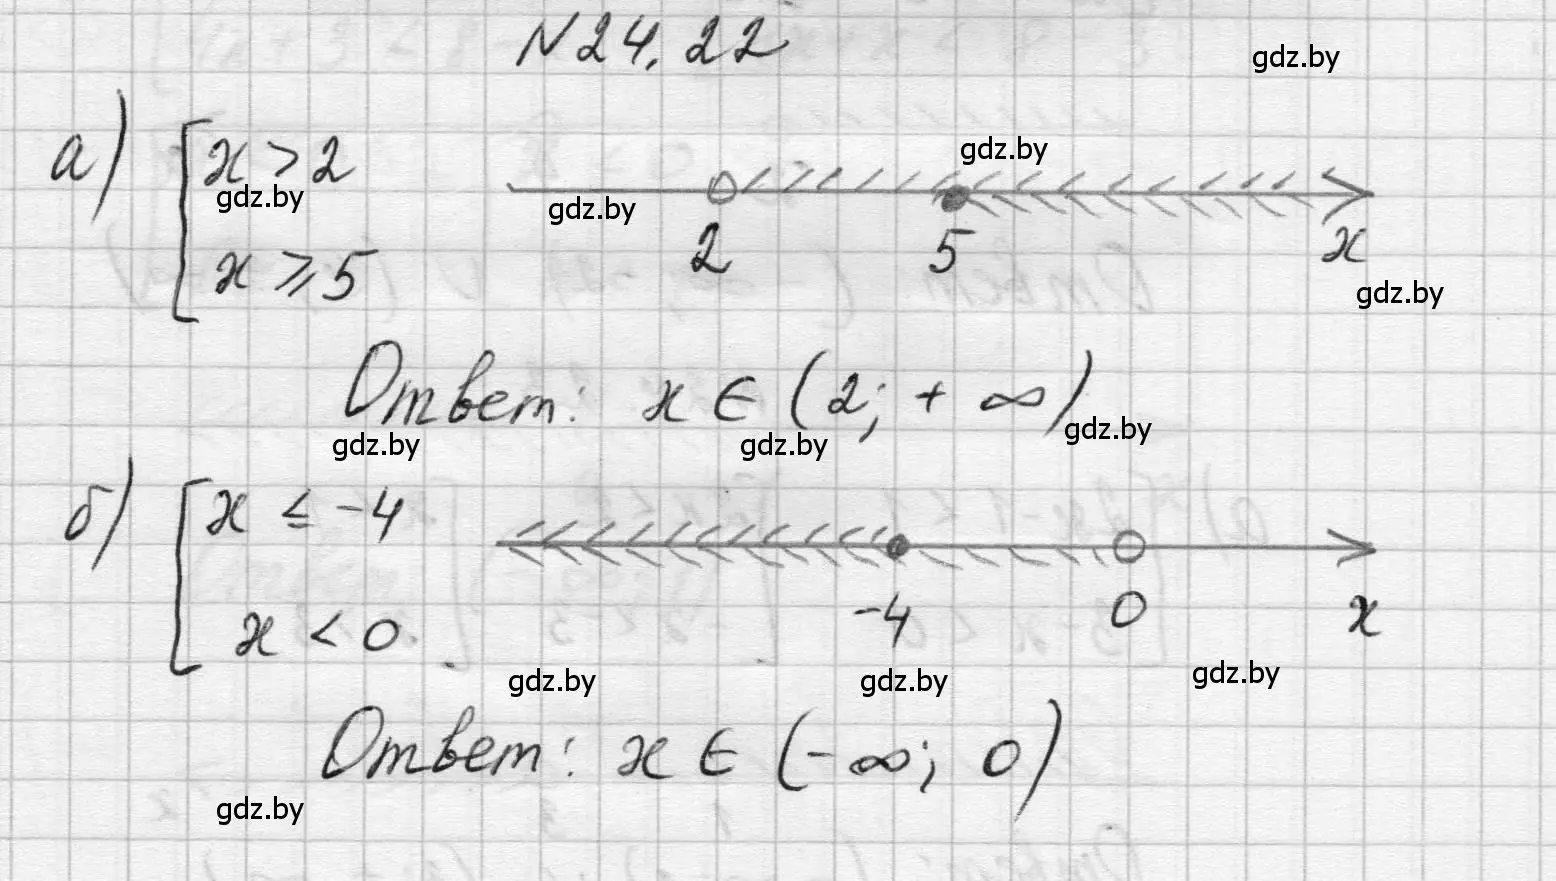 N 24.22
gdz.by
а) [ x > 2
gdz.by
x ⩾ 5
gdz.by
gdz.by
2 5 x
gdz.by
Ответ: x ∈ (2; + ∞)
gdz.by gdz.by gdz.by
б) [ x ≤ -4
x < 0.
-4 0 x
gdz.by gdz.by gdz.by
Ответ: x ∈ (-∞; 0)
gdz.by